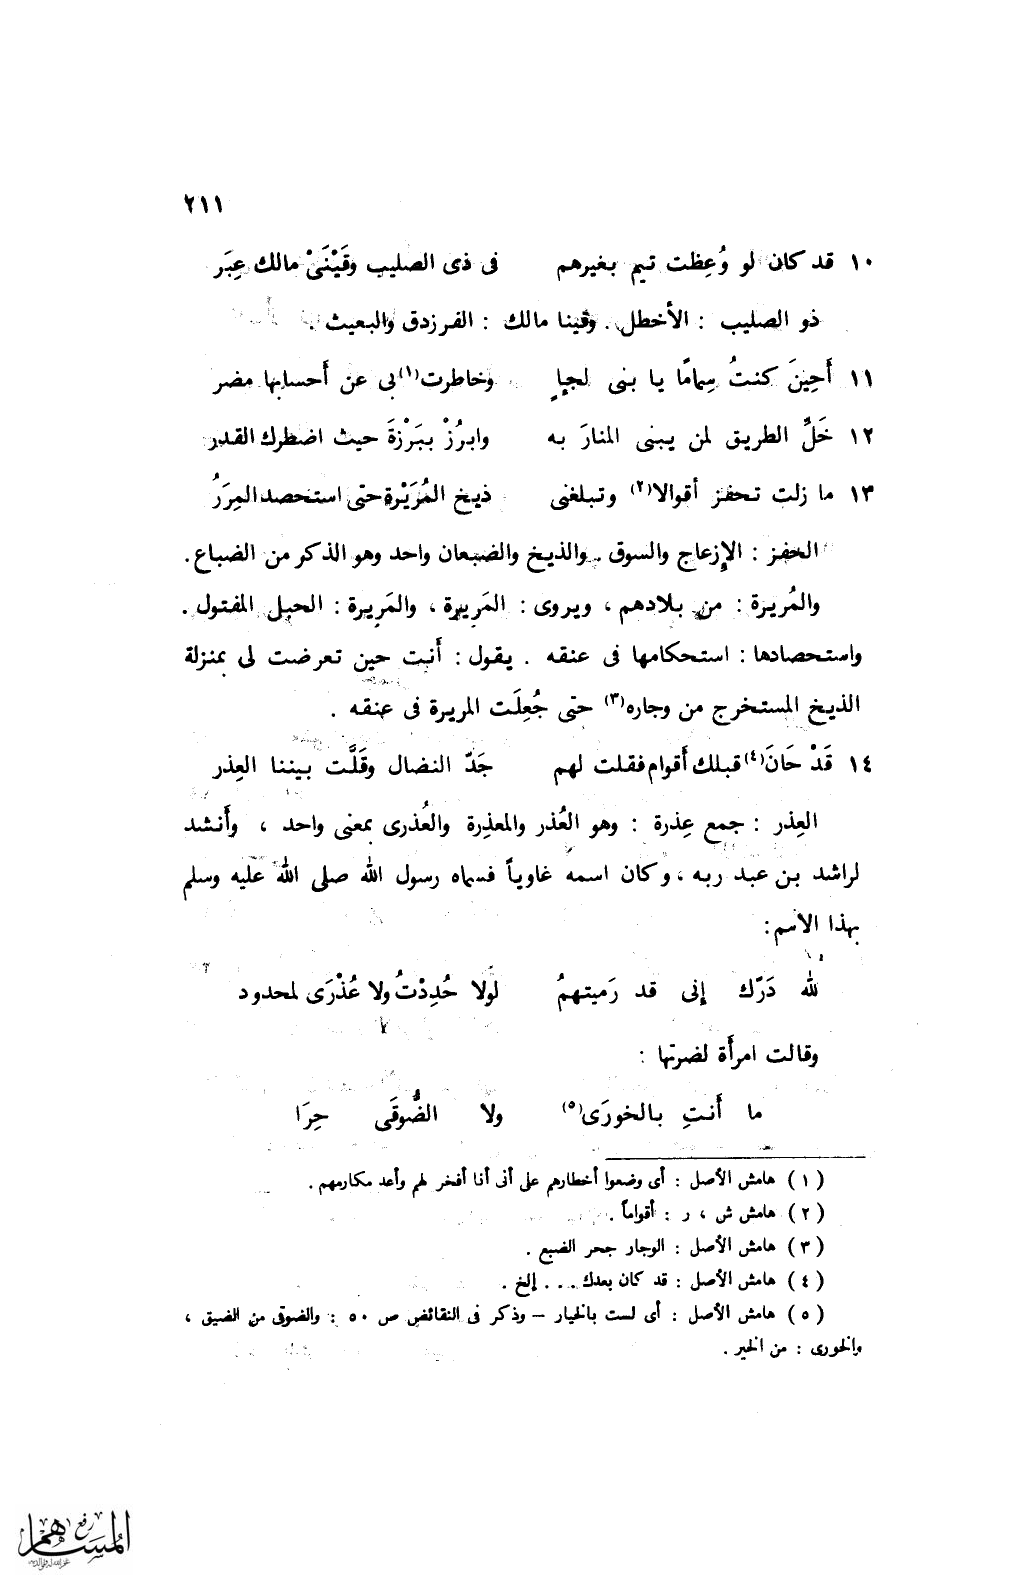 ٢١١
١٠ قد كان لو وُعِظت تيم بغيرهم فى ذى الصليب وقَيْنَىْ مالك عِبَر
ذو الصليب : الأخطل . وقينا مالك : الفرزدق والبعيث .
١١ أَحِينَ كنتُ سِمامًا يا بنى لجإٍ وخاطرت(١) بى عن أَحسابها مضر
١٢ خَلِّ الطريق لمن يبنى المنارَ به وابرُزْ ببَرْزةَ حيث اضطرك القدر
١٣ ما زلت تحفز أقوالا(٢) وتبلغنى ذيخ المُرَيْرة حتى استحصد المِرَرُ
الحفز : الإزعاج والسوق . والذيخ والضبعان واحد وهو الذكر من الضباع .
والمُريرة : من بلادهم ، ويروى : المَريرة ، والمَريرة : الحبل المفتول .
واستحصادها : استحكامها فى عنقه . يقول : أَنت حين تعرضت لى بمنزلة
الذيخ المستخرج من وجاره(٣) حتى جُعِلَت المريرة فى عنقه .
١٤ قَدْ حَانَ(٤) قبلك أَقوام فقلت لهم جَدّ النضال وقَلَّت بيننا العِذر
العِذر : جمع عِذرة : وهو العُذر والمعذِرة والعُذرى بمعنى واحد ، وأَنشد
لراشد بن عبد ربه ، وكان اسمه غاوياً فسماه رسول الله صلى الله عليه وسلم
بهذا الاسم :
لله دَرّك إنى قد رَميتهمُ لولا حُدِدْتُ ولا عُذْرَى لمحدود
وقالت امرأَة لضرتها :
ما أَنتِ بالخورَى(٥) ولا الضُّوقَى حِرَا
(١) هامش الأصل : أى وضعوا أخطارهم على أنى أنا أفخر لهم وأعد مكارمهم .
(٢) هامش ش ، ر : أقواماً .
(٣) هامش الأصل : الوجار جحر الضبع .
(٤) هامش الأصل : قد كان بعدك . . . إلخ .
(٥) هامش الأصل : أى لست بالخيار – وذكر فى النقائض ص ٥٠ : والضوقى من الضيق ،
والخورى : من الخير .
رفع
المساهم